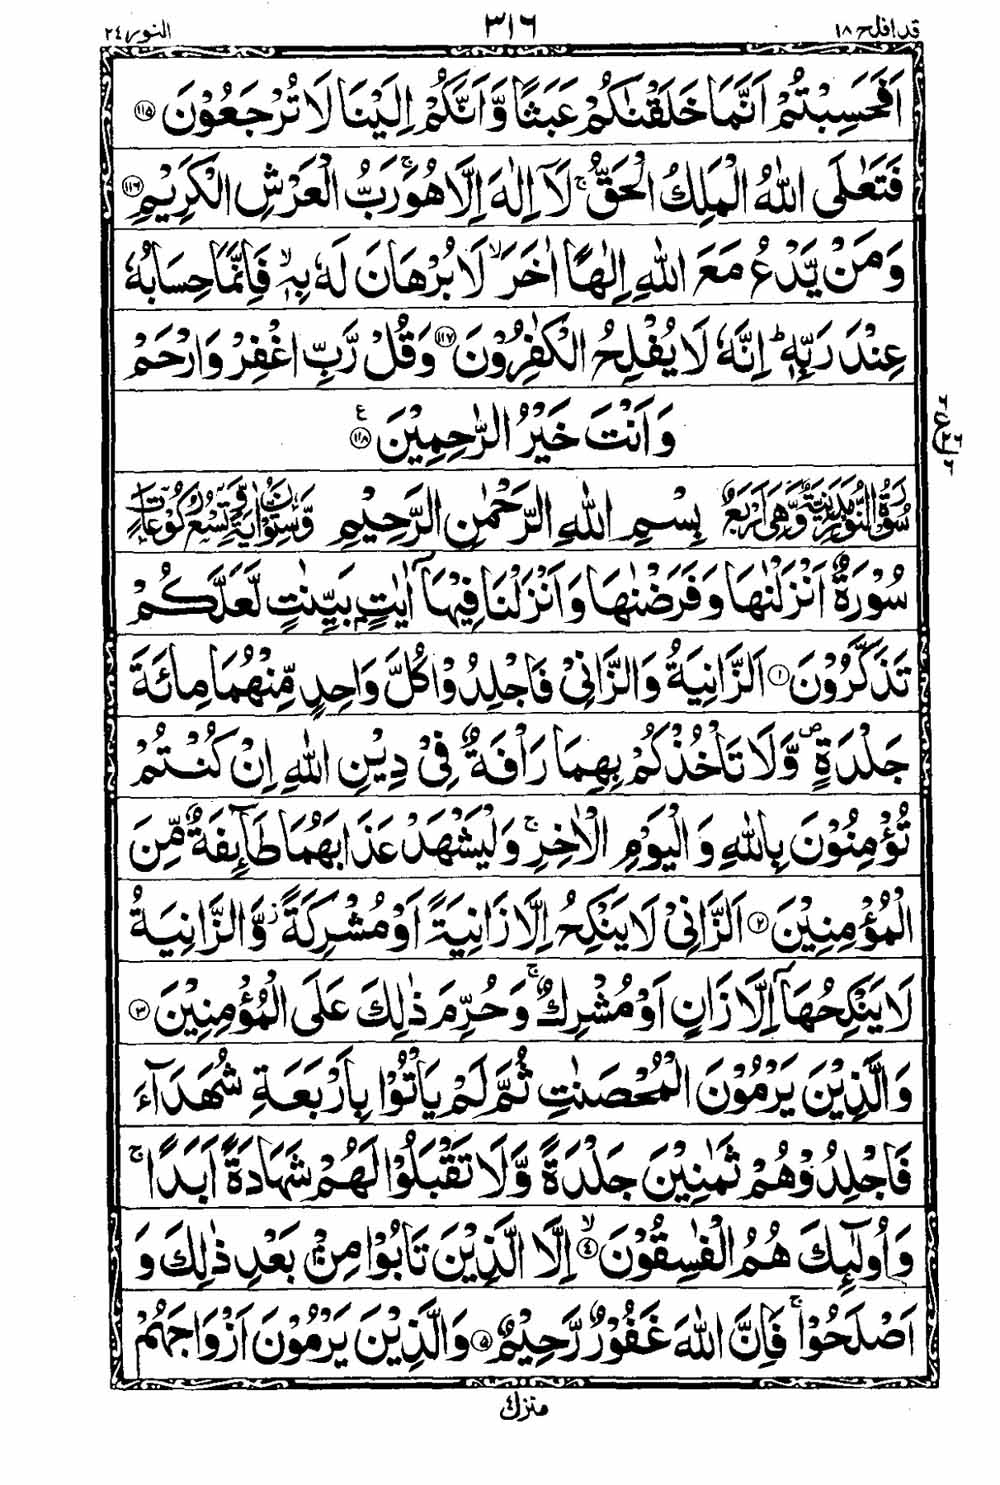 قد افلح ١٨
٣١٦
النور ٢٤
اَفَحَسِبْتُمْ اَنَّمَا خَلَقْنٰكُمْ عَبَثًا وَّاَنَّكُمْ اِلَيْنَا لَا تُرْجَعُوْنَ ﴿١١٥﴾
فَتَعٰلَى اللّٰهُ الْمَلِكُ الْحَقُّ ۚ لَاۤ اِلٰهَ اِلَّا هُوَ ۚ رَبُّ الْعَرْشِ الْكَرِيْمِ ﴿١١٦﴾
وَمَنْ يَّدْعُ مَعَ اللّٰهِ اِلٰهًا اٰخَرَ ۙ لَا بُرْهَانَ لَهٗ بِهٖ ۙ فَاِنَّمَا حِسَابُهٗ
عِنْدَ رَبِّهٖ ؕ اِنَّهٗ لَا يُفْلِحُ الْكٰفِرُوْنَ ﴿١١٧﴾ وَقُلْ رَّبِّ اغْفِرْ وَارْحَمْ
وَاَنْتَ خَيْرُ الرّٰحِمِيْنَ ﴿١١٨﴾ ع
سُوْرَةُ النُّوْرِ مَدَنِيَّةٌ وَّهِىَ اَرْبَعٌ بِسْمِ اللّٰهِ الرَّحْمٰنِ الرَّحِيْمِ وَّسِتُّوْنَ اٰيَةً وَّتِسْعُ رُكُوْعَاتٍ
سُوْرَةٌ اَنْزَلْنٰهَا وَفَرَضْنٰهَا وَاَنْزَلْنَا فِيْهَاۤ اٰيٰتٍۭ بَيِّنٰتٍ لَّعَلَّكُمْ
تَذَكَّرُوْنَ ﴿١﴾ اَلزَّانِيَةُ وَالزَّانِىْ فَاجْلِدُوْا كُلَّ وَاحِدٍ مِّنْهُمَا مِائَةَ
جَلْدَةٍ ۪ وَّلَا تَاْخُذْكُمْ بِهِمَا رَاْفَةٌ فِىْ دِيْنِ اللّٰهِ اِنْ كُنْتُمْ
تُؤْمِنُوْنَ بِاللّٰهِ وَالْيَوْمِ الْاٰخِرِ ۚ وَلْيَشْهَدْ عَذَابَهُمَا طَآئِفَةٌ مِّنَ
الْمُؤْمِنِيْنَ ﴿٢﴾ اَلزَّانِىْ لَا يَنْكِحُ اِلَّا زَانِيَةً اَوْ مُشْرِكَةً ؗ وَّالزَّانِيَةُ
لَا يَنْكِحُهَاۤ اِلَّا زَانٍ اَوْ مُشْرِكٌ ۚ وَحُرِّمَ ذٰلِكَ عَلَى الْمُؤْمِنِيْنَ ﴿٣﴾
وَالَّذِيْنَ يَرْمُوْنَ الْمُحْصَنٰتِ ثُمَّ لَمْ يَاْتُوْا بِاَرْبَعَةِ شُهَدَآءَ
فَاجْلِدُوْهُمْ ثَمٰنِيْنَ جَلْدَةً وَّلَا تَقْبَلُوْا لَهُمْ شَهَادَةً اَبَدًا ۚ
وَاُولٰٓئِكَ هُمُ الْفٰسِقُوْنَ ۙ﴿٤﴾ اِلَّا الَّذِيْنَ تَابُوْا مِنْۢ بَعْدِ ذٰلِكَ وَ
اَصْلَحُوْا ۚ فَاِنَّ اللّٰهَ غَفُوْرٌ رَّحِيْمٌ ﴿٥﴾ وَالَّذِيْنَ يَرْمُوْنَ اَزْوَاجَهُمْ
منزل ٤